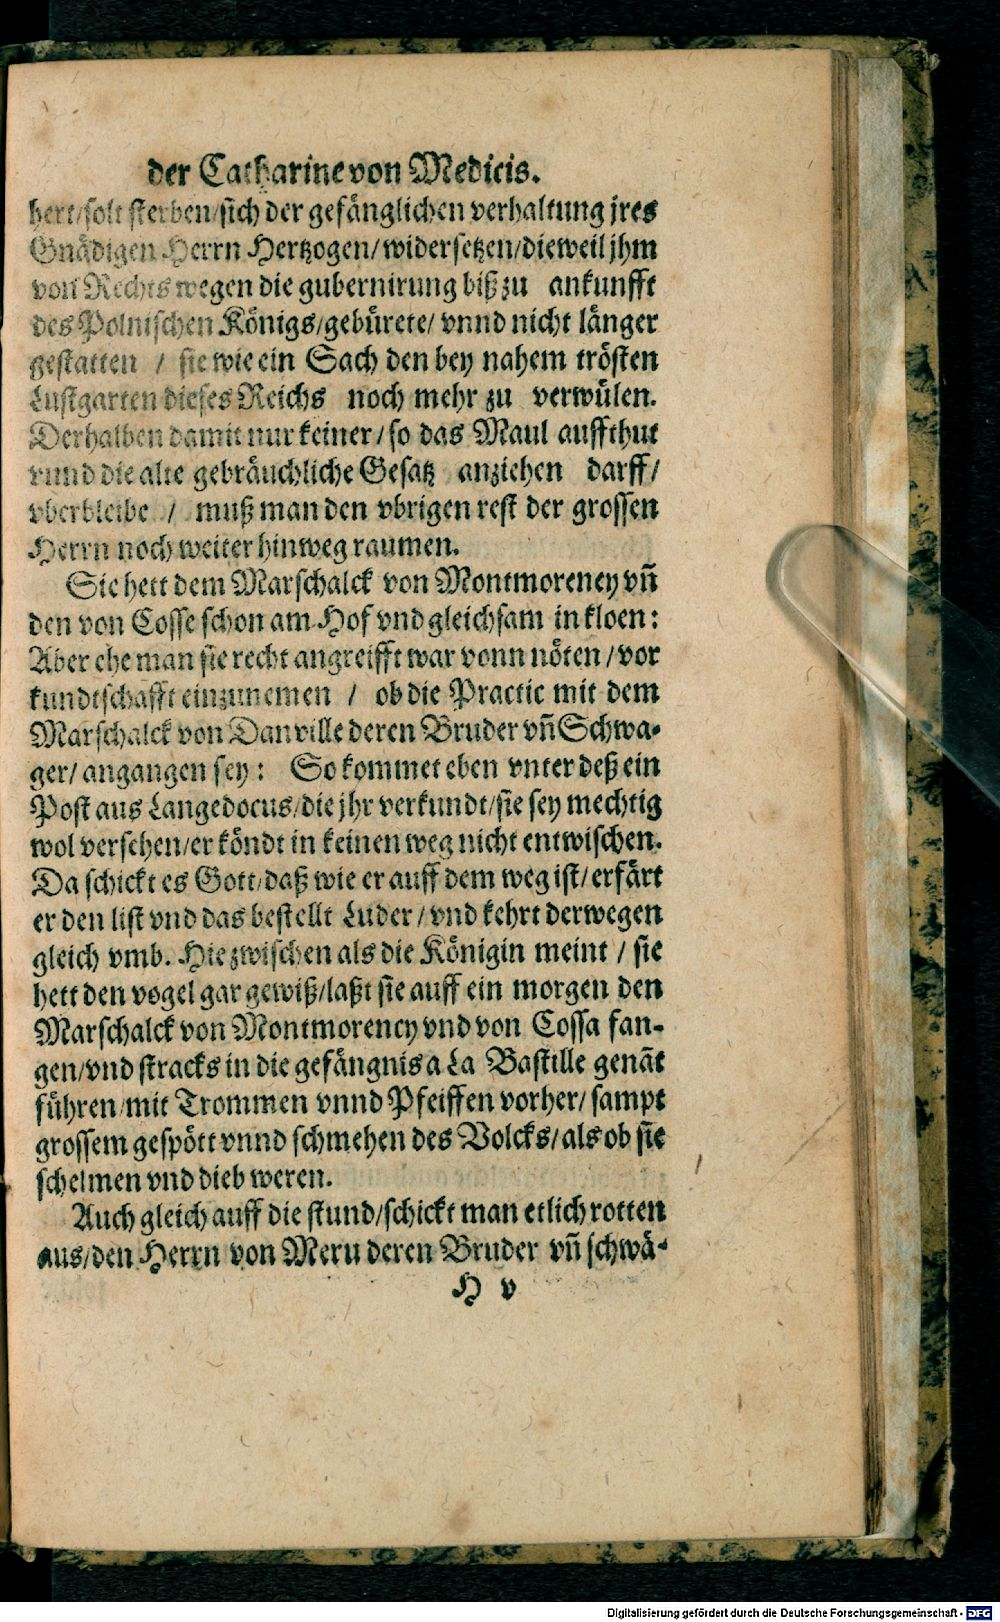 der Catharine von Medicis.
hert/solt sterben/sich der gefänglichen verhaltung jres
Gnädigen Herrn Hertzogen/widersetzen/dieweil jhm
von Rechts wegen die gubernirung biß zu ankunfft
des Polnischen Königs/gebürete/vnnd nicht länger
gestatten / sie wie ein Sach den bey nahem trösten
Lustgarten dieses Reichs noch mehr zu verwülen.
Derhalben damit nur keiner/so das Maul auffthut
vnnd die alte gebräuchliche Gesatz anziehen darff/
vberbleibe / muß man den vbrigen rest der grossen
Herrn noch weiter hinweg raumen.
Sie hett dem Marschalck von Montmorency vñ
den von Cosse schon am Hof vnd gleichsam in kloen:
Aber ehe man sie recht angreifft war vonn nöten/vor
kundtschafft einzunemen / ob die Practic mit dem
Marschalck von Danville deren Bruder vñ Schwa-
ger/angangen sey: So kommet eben vnter deß ein
Post aus Langedocus/die jhr verkundt/sie sey mechtig
wol versehen/er köndt in keinen weg nicht entwischen.
Da schickt es Gott/daß wie er auff dem weg ist/erfärt
er den list vnd das bestellt Luder/vnd kehrt derwegen
gleich vmb. Hiezwischen als die Königin meint / sie
hett den vogel gar gewiß/laßt sie auff ein morgen den
Marschalck von Montmorency vnd von Cossa fan-
gen/vnd stracks in die gefängnis a La Bastille genãt
führen/mit Trommen vnnd Pfeiffen vorher/sampt
grossem gespött vnnd schmehen des Volcks/als ob sie
schelmen vnd dieb weren.
Auch gleich auff die stund/schickt man etlich rotten
aus/den Herrn von Meru deren Bruder vñ schwä-
H v
Digitalisierung gefördert durch die Deutsche Forschungsgemeinschaft - DFG